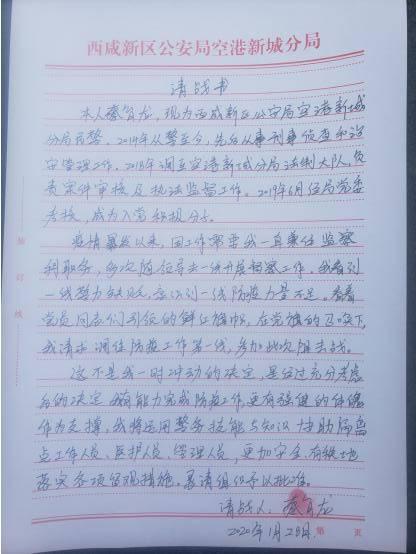 西咸新区公安局空港新城分局
请战书
本人蔡 龙，现为西咸新区公安局空港新城
分局民警。2014年从警至今，先后从事刑事侦查和治
安管理工作。2018年调至空港新城分局法制大队，负
责案件审核及执法监督工作。2019年6月经局党委
考核，成为入党积极分子。
疫情暴发以来，因工作需要我一直兼任监察
科职务，多次随领导去一线开展督察工作，我看到
一线警力缺乏，意识到一线防疫力量不足。看着
党员同志们引领的鲜红旗帜，在党旗的召唤下，
我请求调往防疫工作第一线，参加此次阻击战。
这不是我一时冲动的决定，是经过充分考虑
后的决定。我有能力完成防疫工作，更有强健的体魄
作为支撑，我将运用警务技能与知识协助隔离
点工作人员、医护人员、管理人员，更加安全、有效地
落实各项留观措施。恳请组织予以批准。
请战人：蔡 龙
2020年1月28日
第 页
装
订
线